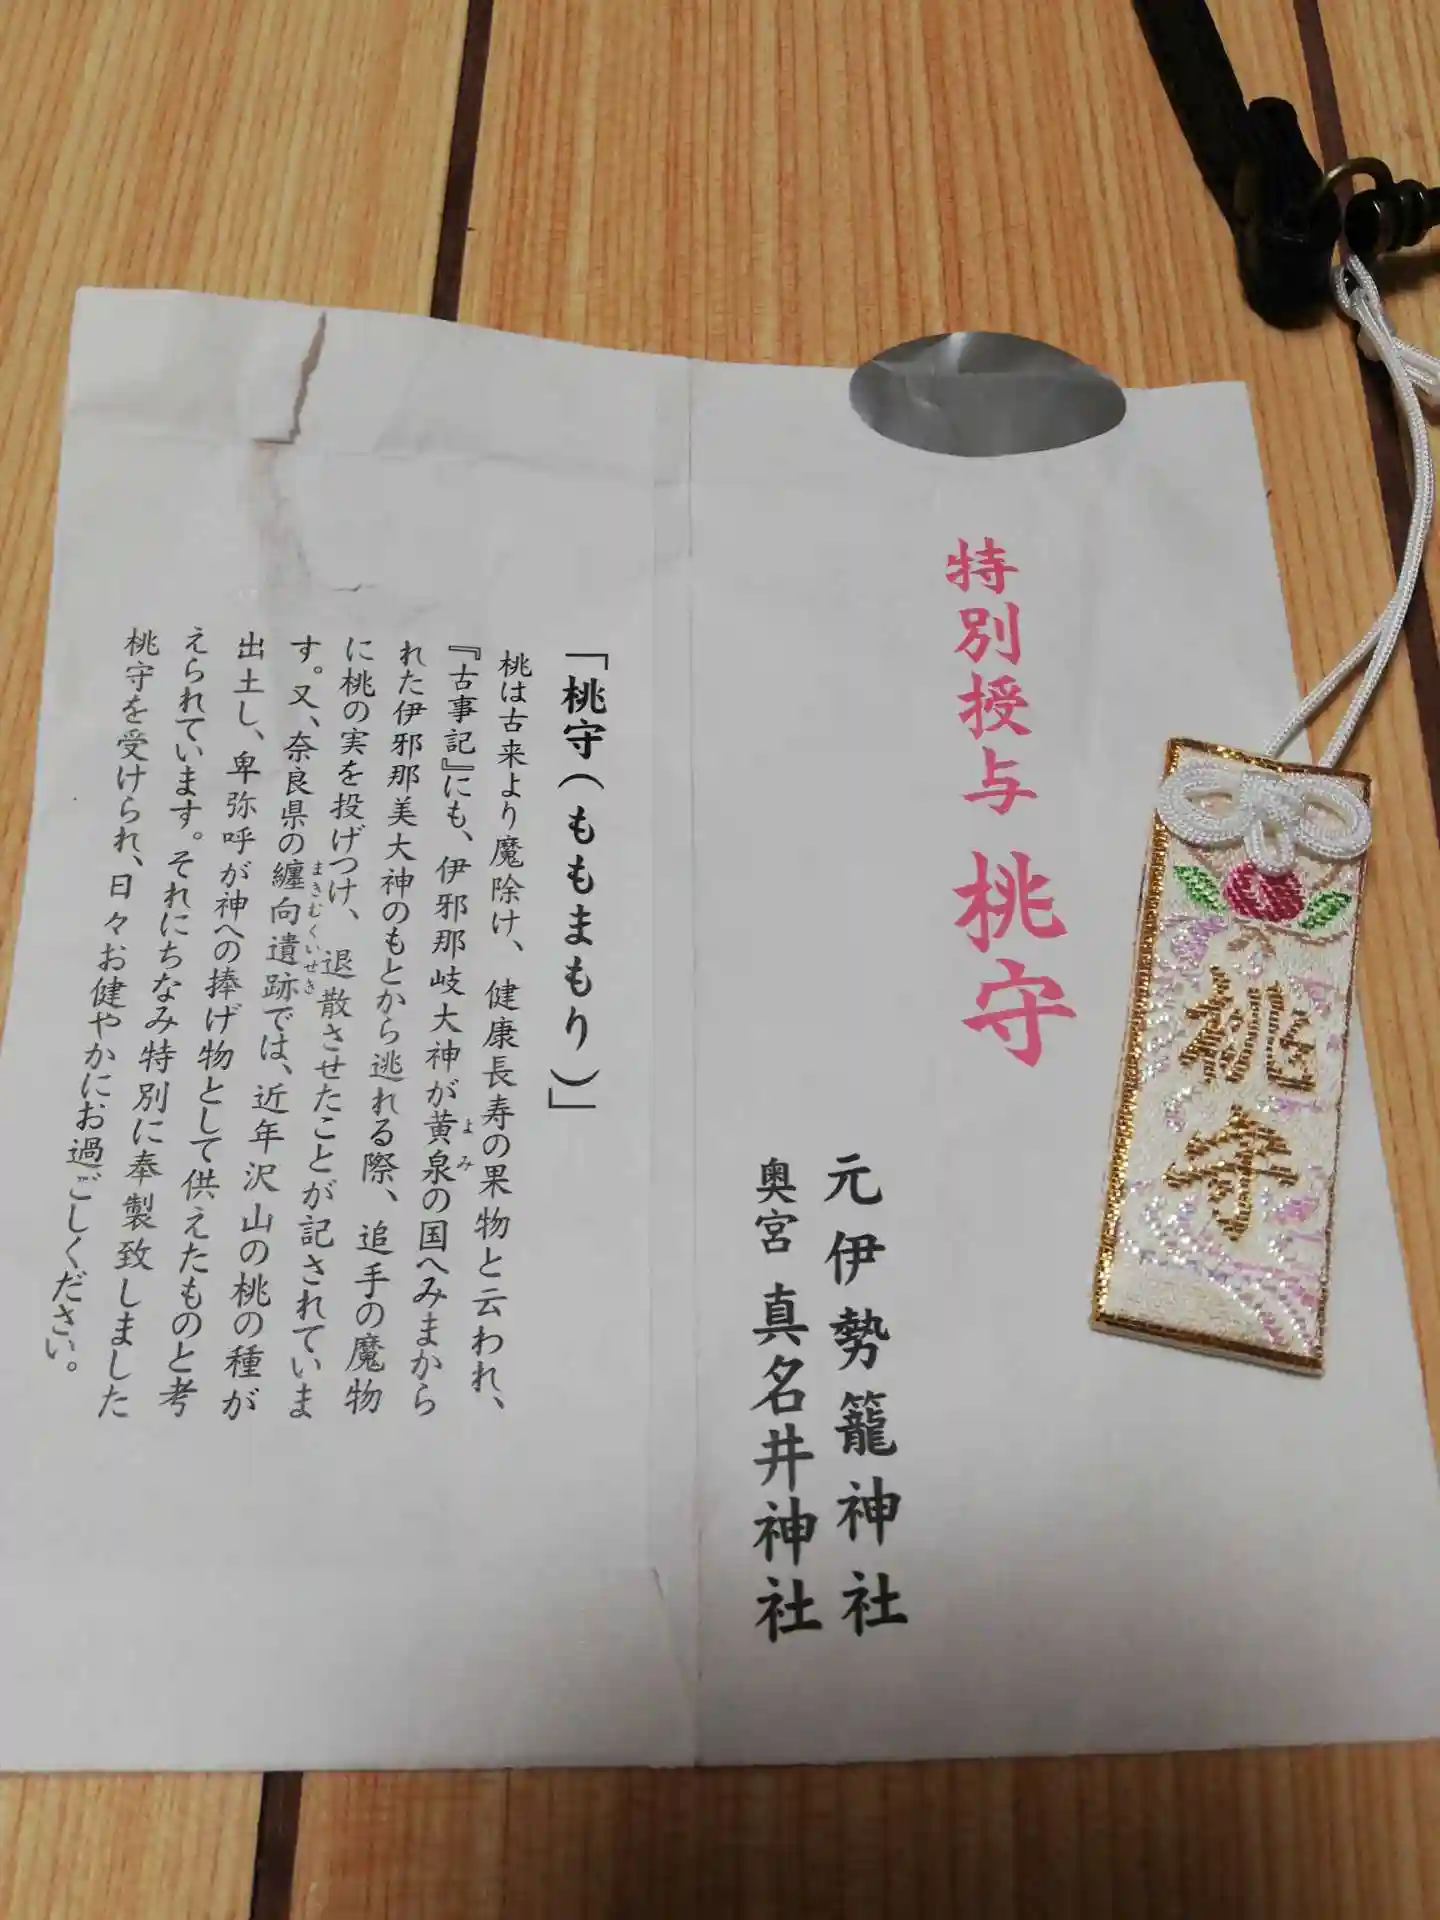 特別授与 桃守
元伊勢籠神社
奥宮 真名井神社
「桃守(ももまもり)」
桃は古来より魔除け、健康長寿の果物と云われ、
『古事記』にも、伊邪那岐大神が黄泉の国へみまから
よみ
れた伊邪那美大神のもとから逃れる際、追手の魔物
に桃の実を投げつけ、退散させたことが記されていま
す。又、奈良県の纏向遺跡では、近年沢山の桃の種が
まきむくいせき
出土し、卑弥呼が神への捧げ物として供えたものと考
えられています。それにちなみ特別に奉製致しました
桃守を受けられ、日々お健やかにお過ごしください。
桃守